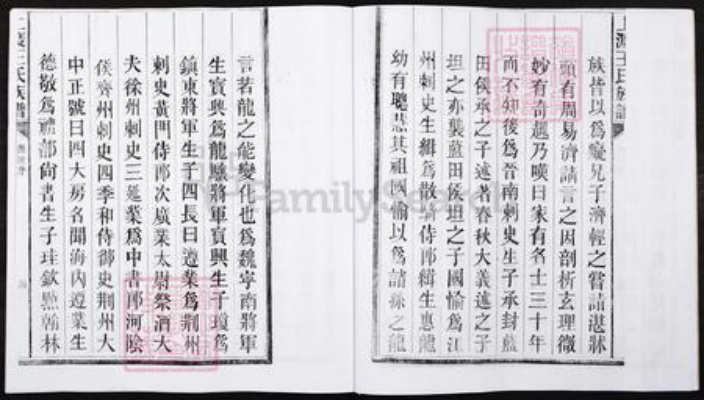 族皆以爲癡兄子濟輕之嘗詣湛牀
頭有周易濟請言之因剖析玄理微
妙有奇趣乃嘆曰家有名士三十年
而不知後爲晉南刺史生子承封藍
田侯承之子述著春秋大義述之子
坦之亦襲藍田侯坦之子國愉爲江
州刺史生緝爲散騎侍郎緝生惠龍
幼有聰慧其祖國愉以爲諸孫之龍
言若龍之能變化也爲魏寧南將軍
生寶興爲龍驤將軍寶興生子瓊爲
鎮東將軍生子四長曰遵業爲荆州
刺史黃門侍郎次廣業太尉祭酒大
夫徐州刺史三延業爲中書郎河陰
侯齊州刺史四季和侍御史荆州大
中正號曰四大房名聞海内遵業生
德敬爲禮部尙書生子珪欽點翰林
王氏族譜
FamilySearch